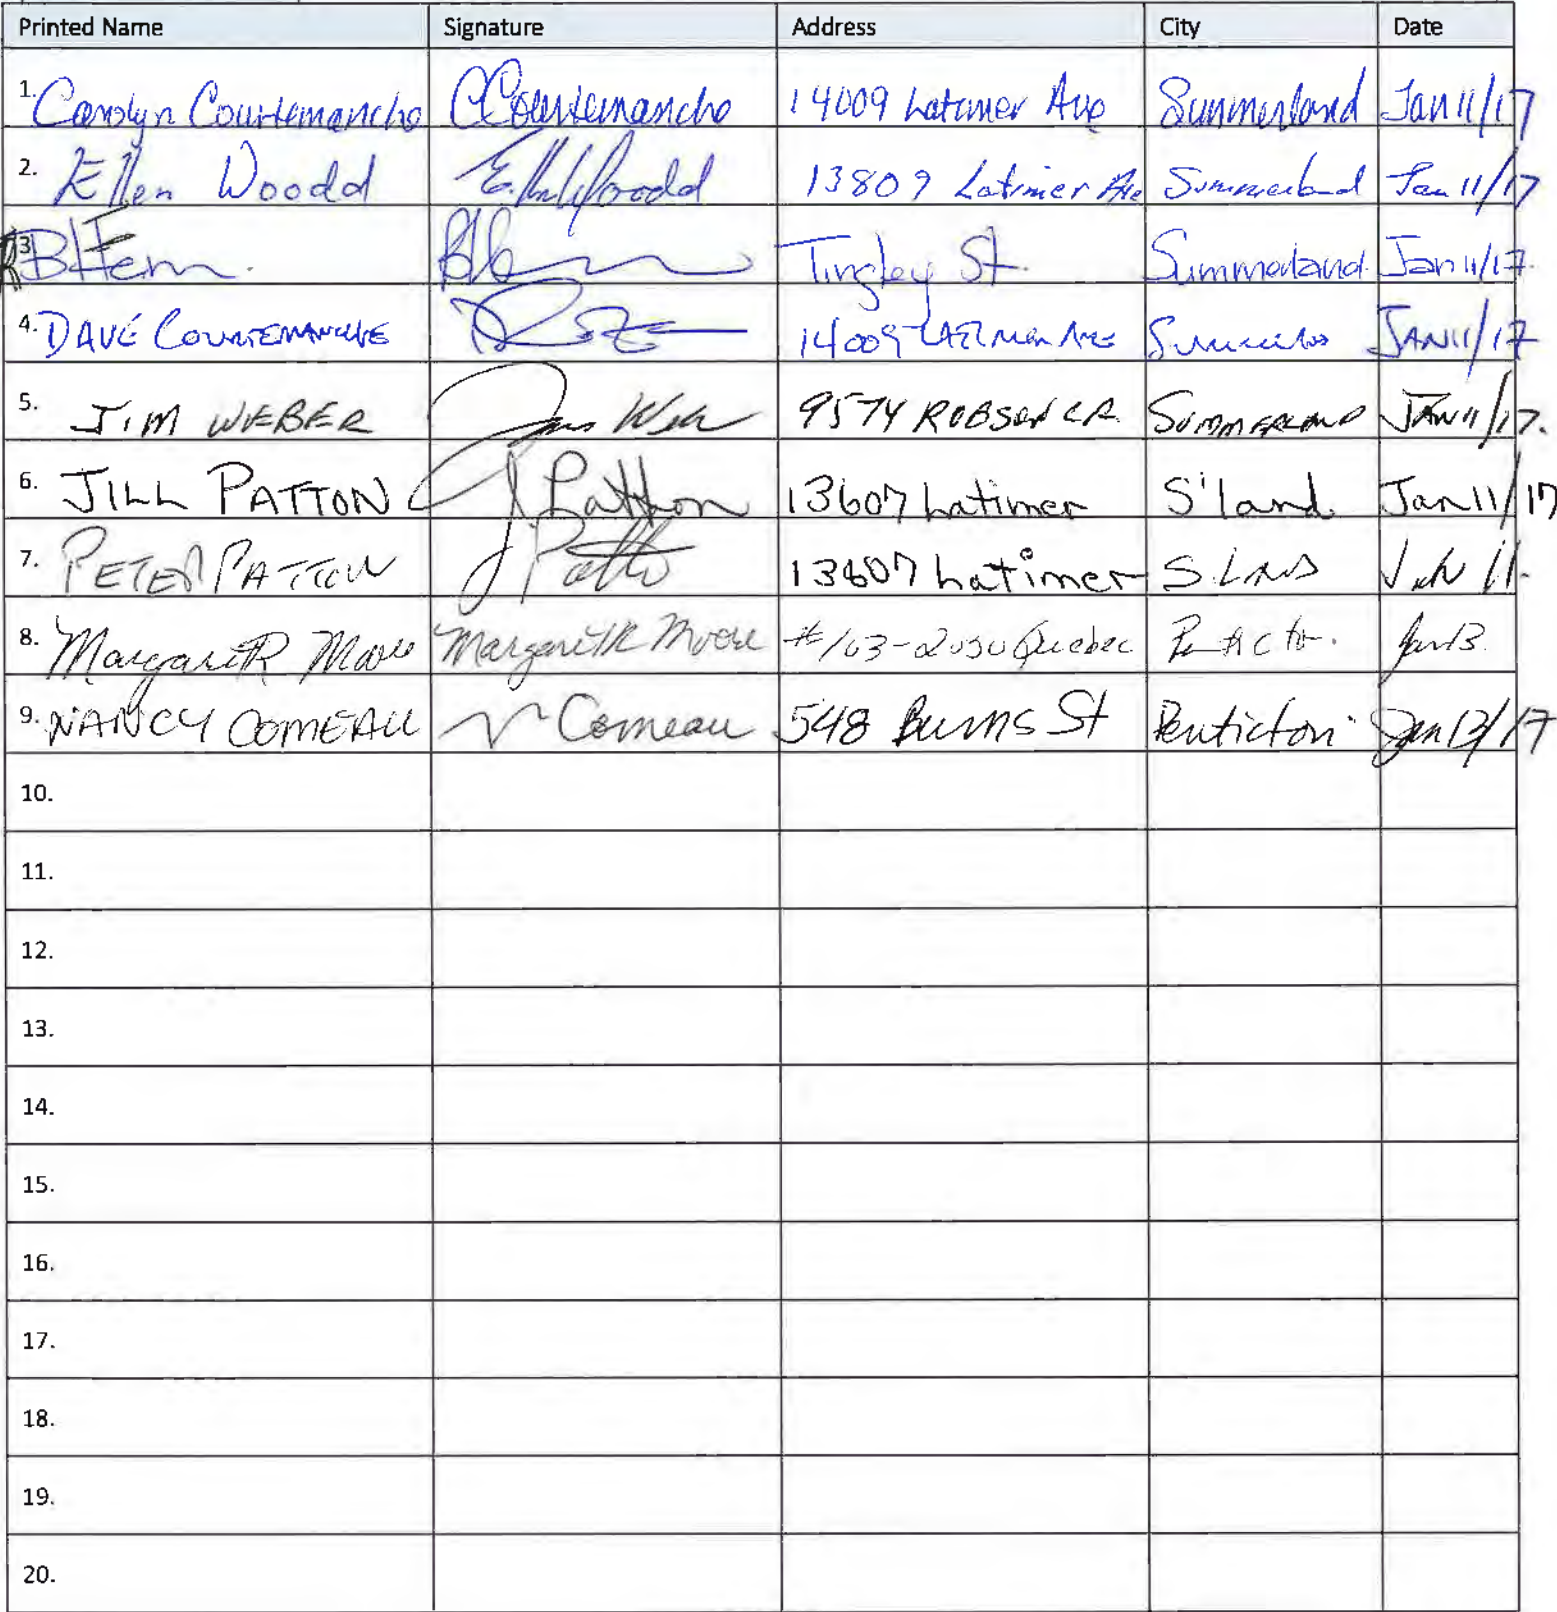 Printed Name Signature Address City Date
1. Carolyn Courtemanche CCourtemanche 14009 Latimer Ave Summerland Jan 11/17
2. Ellen Woodd Ellen Woodd 13809 Latimer Ave Summerland Jan 11/17
3. Tingley St. Summerland Jan 11/17.
4. DAVE COURTEMANCHE 14009 LATIMER AVE JAN 11/17
5. JIM WEBER 9574 ROBSON CR SUMMERLAND JAN 11/17.
6. JILL PATTON J. Patton 13607 Latimer S'land Jan 11/17
7. PETER PATTON 13607 Latimer S.LAND 11.
8. Margaret R Moore Margaret R Moore #103-2030 Quebec Jan 13.
9. NANCY COMEAU N Comeau 548 Burns St Penticton Jan 13/17
10.
11.
12.
13.
14.
15.
16.
17.
18.
19.
20.